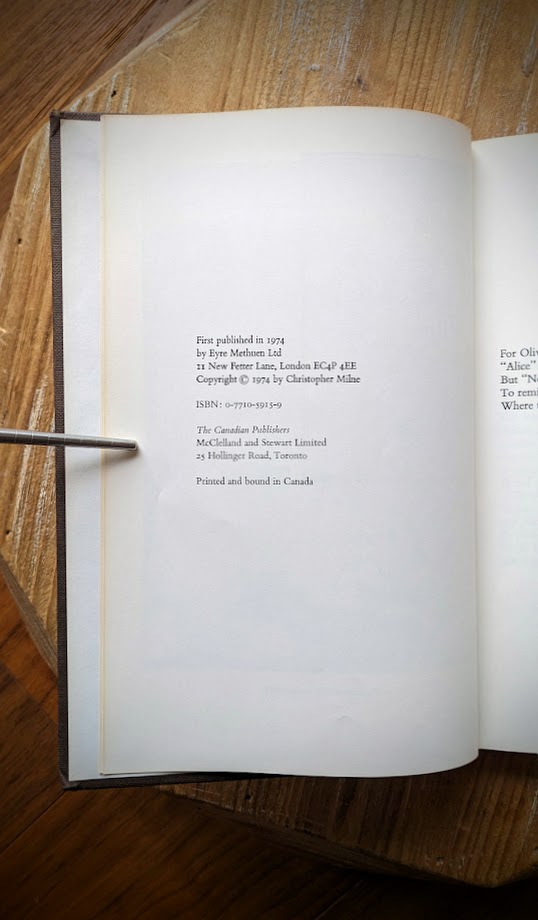 First published in 1974
by Eyre Methuen Ltd
21 New Fetter Lane, London EC4P 4EE
Copyright © 1974 by Christopher Milne
ISBN: 0-7710-5915-9
The Canadian Publishers
McClelland and Stewart Limited
25 Hollinger Road, Toronto
Printed and bound in Canada
For
"Alice"
But
To
Where